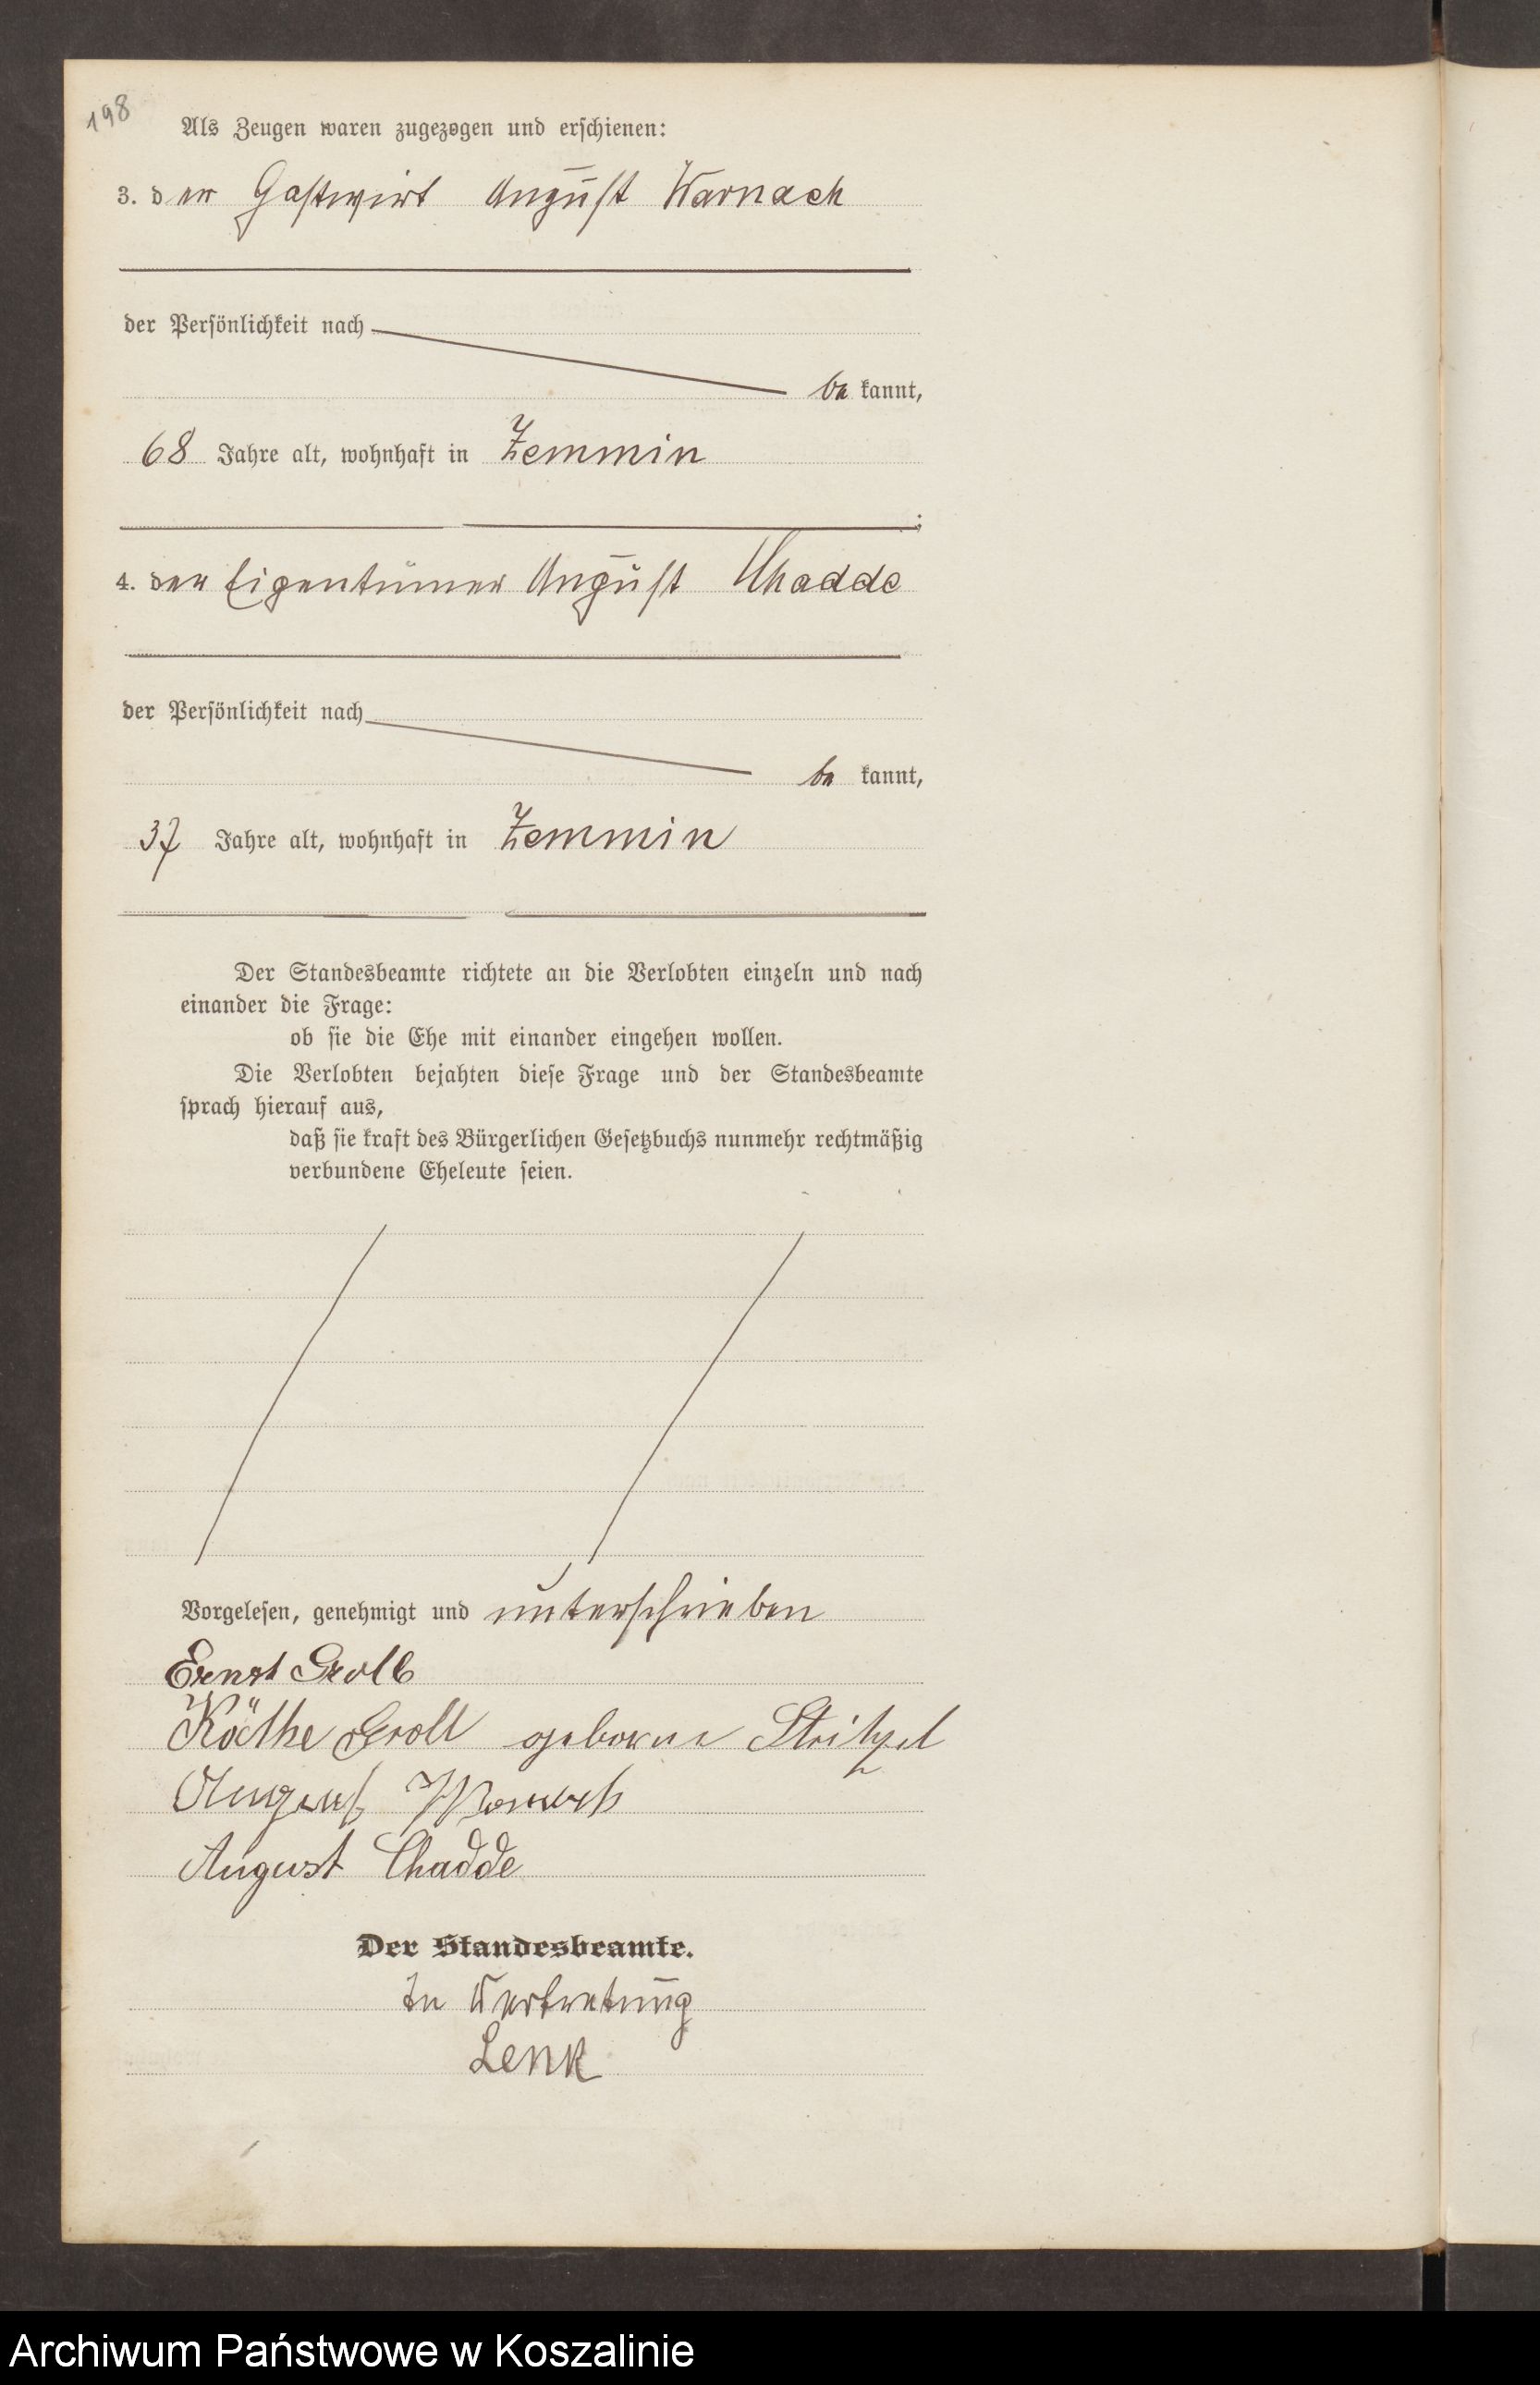 198
Als Zeugen waren zugezogen und erschienen:
3. der Gastwirt August Warnach
der Persönlichkeit nach
be kannt,
68 Jahre alt, wohnhaft in Zemmin
;
4. der Eigentümer August Chadde
der Persönlichkeit nach
be kannt,
37 Jahre alt, wohnhaft in Zemmin
Der Standesbeamte richtete an die Verlobten einzeln und nach
einander die Frage:
ob sie die Ehe mit einander eingehen wollen.
Die Verlobten bejahten diese Frage und der Standesbeamte
sprach hierauf aus,
daß sie kraft des Bürgerlichen Gesetzbuchs nunmehr rechtmäßig
verbundene Eheleute seien.
Vorgelesen, genehmigt und unterschrieben
Ernst Groll
Käthe Groll geborne Stritzel
August
August Chadde
Der Standesbeamte.
In Vertretung
Lenk
Archiwum Państwowe w Koszalinie